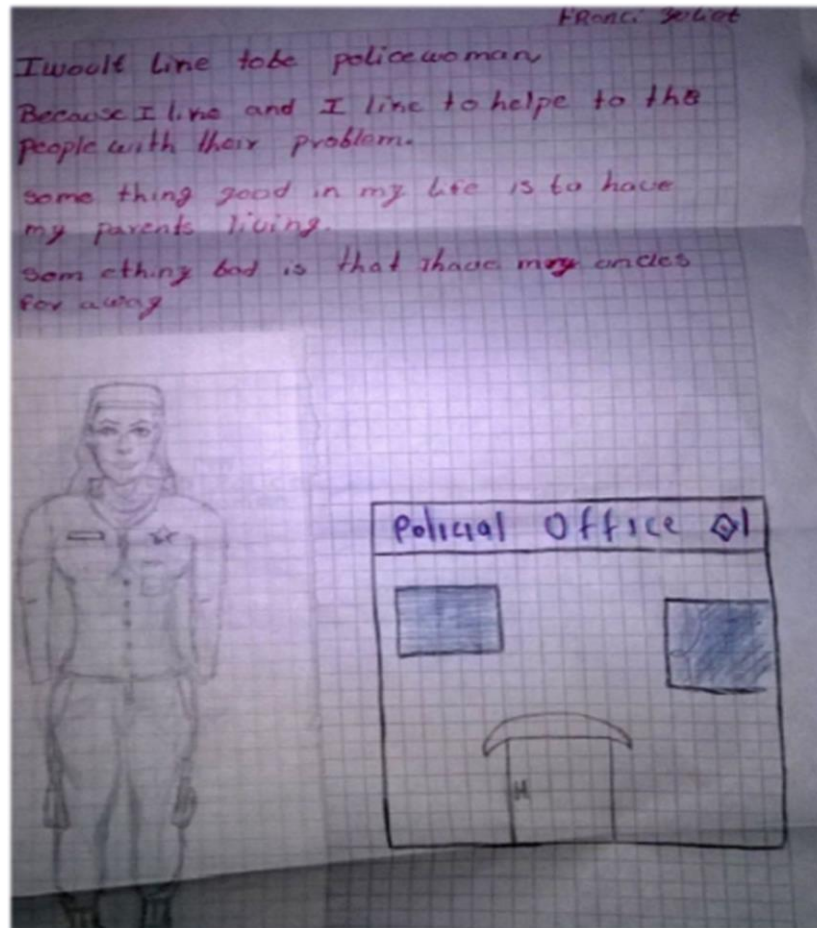 I woult line tobe policewoman
Because I line and I line to helpe to the
people with their problem.
some thing good in my life is to have
my parents living.
som ething bad is that ihave my uncles
for away
Policial Office 01